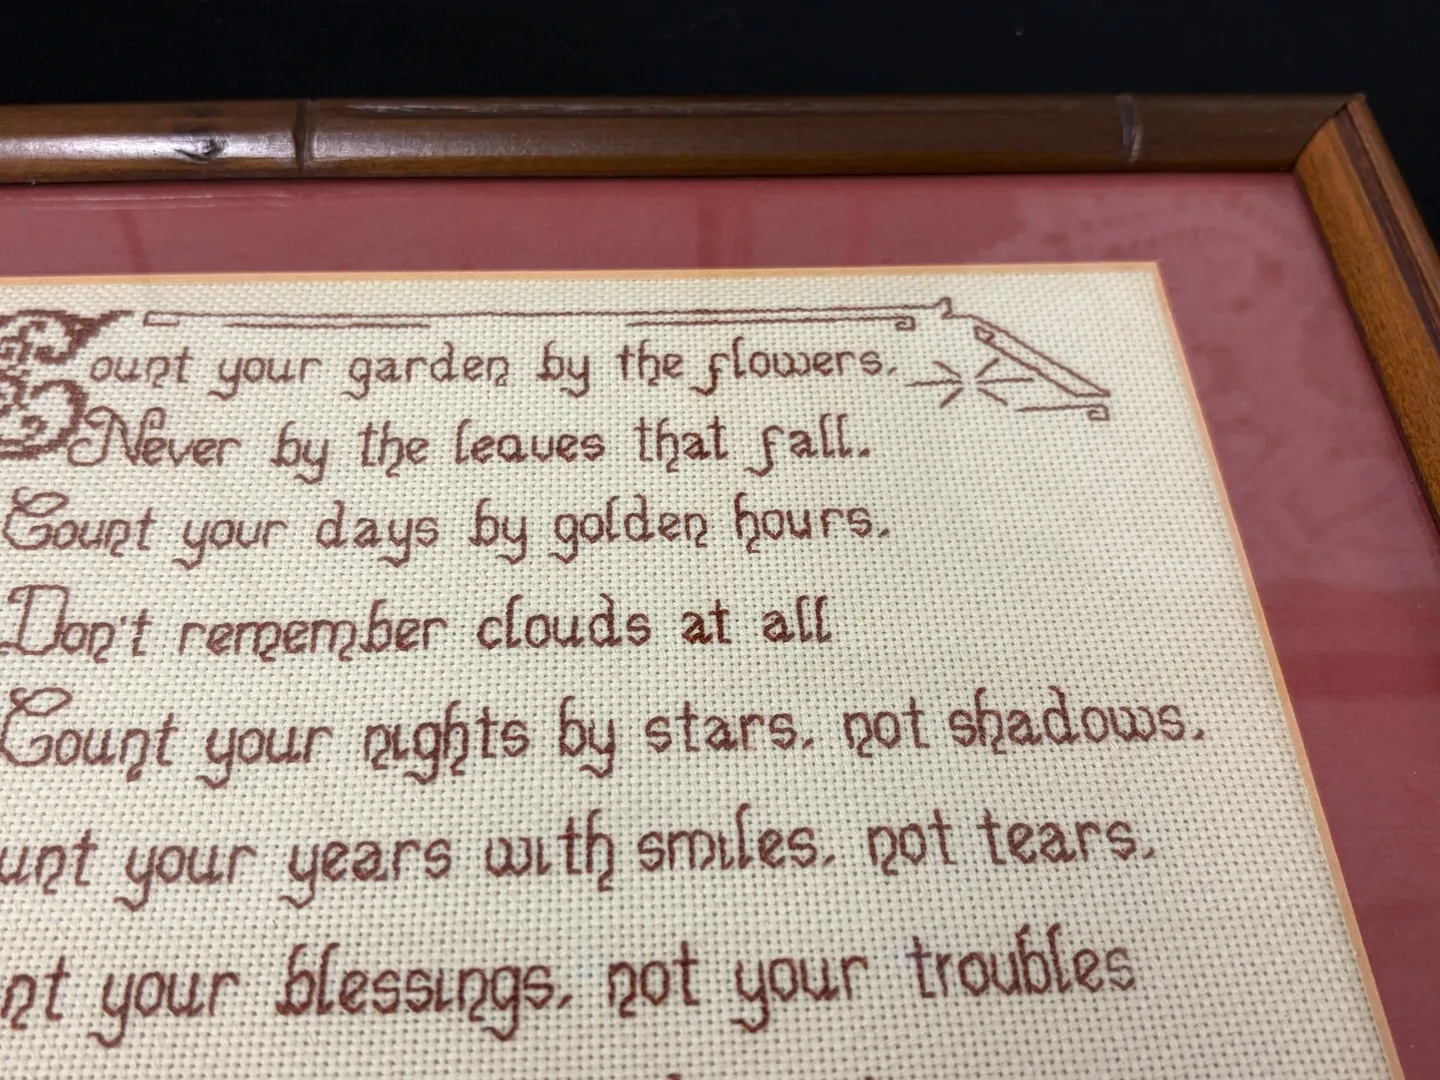 Count your garden by the flowers,
Never by the leaves that fall.
Count your days by golden hours,
Don't remember clouds at all
Count your nights by stars, not shadows,
unt your years with smiles, not tears,
nt your blessings, not your troubles